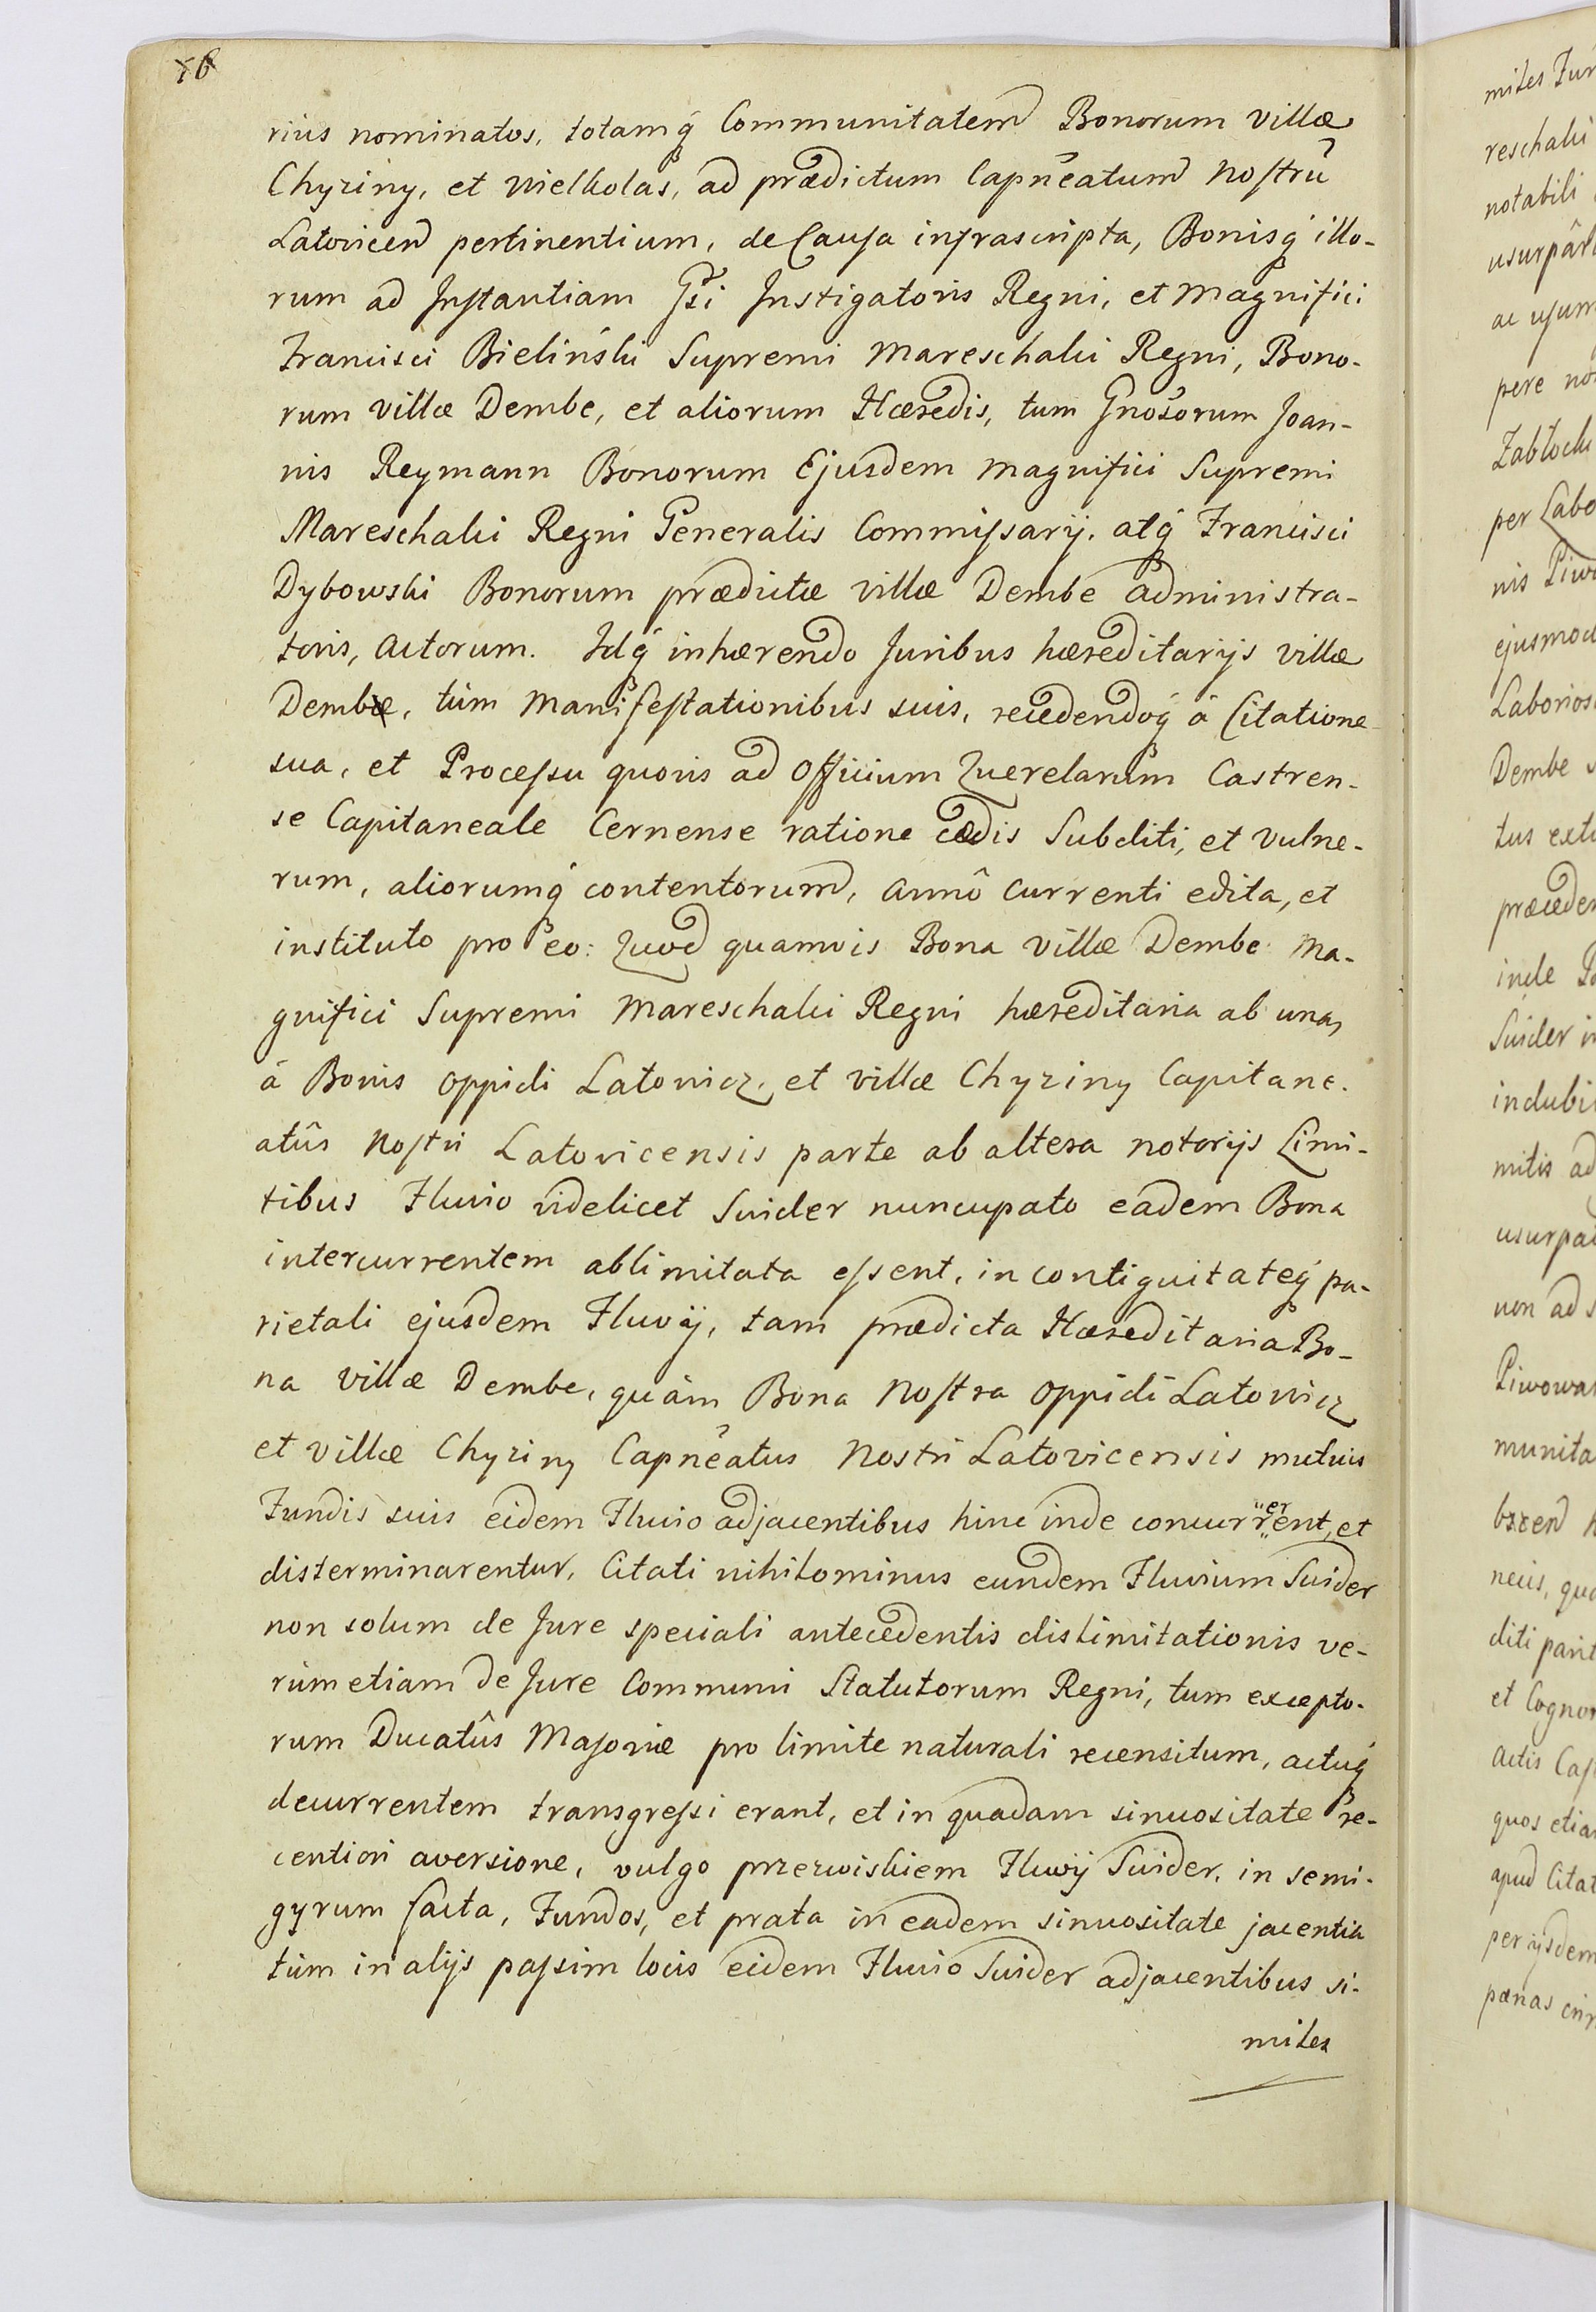 rius nominatos, totamq́ Communitatem Bonorum villæ
Chyziny, et Wielkolas, ad prædictum Capnẽatum Nostrũ
Latovicen pertinentium, de Causa infrascripta, Bonisq́ illo-
rum ad Instantiam Gsi Instigatoris Regni, et Magnifici
Francisci Bieliński Supremi Mareschalci Regni, Bono-
rum villæ Dembe, et aliorum Hæredis, tum Gnosorum Joan-
nis Reymann Bonorum Ejusdem Magnifici Supremi
Mareschalci Regni Generalis Commissarij, atq́ Francisci
Dybowski Bonorum prædictæ villæ Dembe administra-
toris, Actorum. Idq́ inhærendo Juribus hæreditarijs villæ
Dembe, tùm Manifestationibus suis, recedendoq́ à Citatione
sua, et Processu quovis ad Officium Querelarum Castren-
se Capitaneale Cernense ratione cædis Subditi, et vulne-
rum, aliorumq́ contentorum, Annô currenti edita, et
instituto pro eo: Quod quamvis Bona villæ Dembe Ma-
gnifici Supremi Mareschalci Regni hæreditaria ab una,
à Bonis Oppidi Latowicz, et villæ Chyziny Capitane-
atûs Nostri Latovicensis parte ab altera notorijs Limi-
tibus Fluvio videlicet Swider nuncupato eadem Bona
intercurrentem ablimitata essent, in contiguitateq́ pa-
rietali ejusdem Fluvij, tam prædicta Hæreditaria Bo-
na villæ Dembe, quàm Bona Nostra Oppidi Latowicz
et villæ Chyziny Capnẽatus Nostri Latovicensis mutuis
Fundis suis eidem Fluvio adjacentibus hinc inde concurrerent, et
disterminarentur, Citati nihilominus eundem Fluvium Swider
non solum de Jure speciali antecedentis dislimitationis ve-
rùm etiam de Jure Communi Statutorum Regni, tum excepto-
rum Ducatûs Masoviæ pro limite naturali recensitum, actuq́
decurrentem transgressi erant, et in quadam sinuositate re-
centiori aversione, vulgo przezwiskiem Fluvij Swider, in semi-
gyrum facta, Fundos, et prata in eadem sinuositate jacentia
tùm in alijs passim locis eidem Fluvio Swider adjacentibus si-
miles
mites
reschalci
notabili
ac usum
pere
per
nis
Dembe
inde
Swider
mitis ad
non ad
et
Actis
quos
apud
per ijsdem
pænas